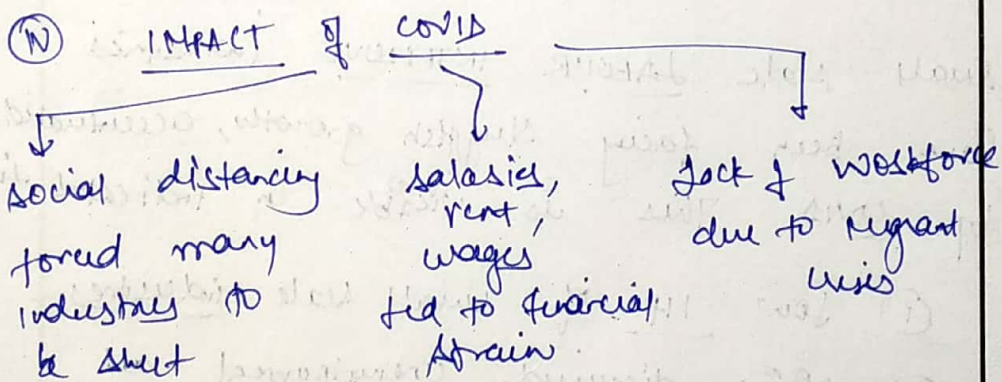 IV IMPACT of COVID
social distancing
forced many
industries to
be shut
salaries,
rent,
wages
led to financial
strain
Lack of workforce
due to migrant
crises